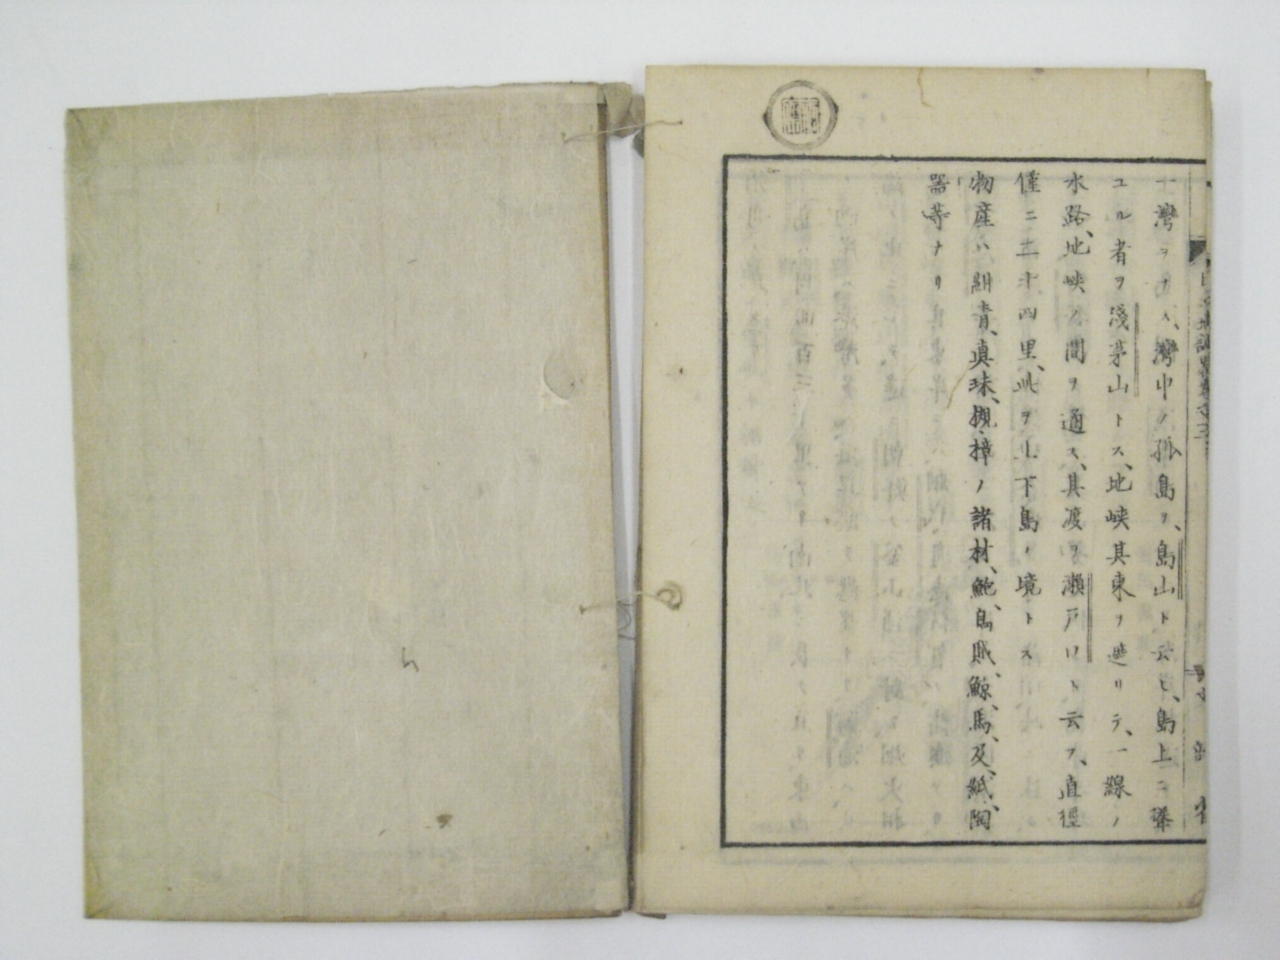 灣ヲナス、灣中ノ孤島ヲ、島山ト云ヒ、島上ニ聳
ユル者ヲ淺茅山トス、地峽其東ヲ遮リテ、一線ノ
水路、地峽ノ間ヲ通ス、其渡ヲ瀬戸口ト云フ、直徑
僅ニ二十四里、此ヲ上下島ノ境トス
物産ハ紺青、眞珠、槻、樟ノ諸材、鮑、烏賊、鯨、馬、及、紙、陶
器等ナリ